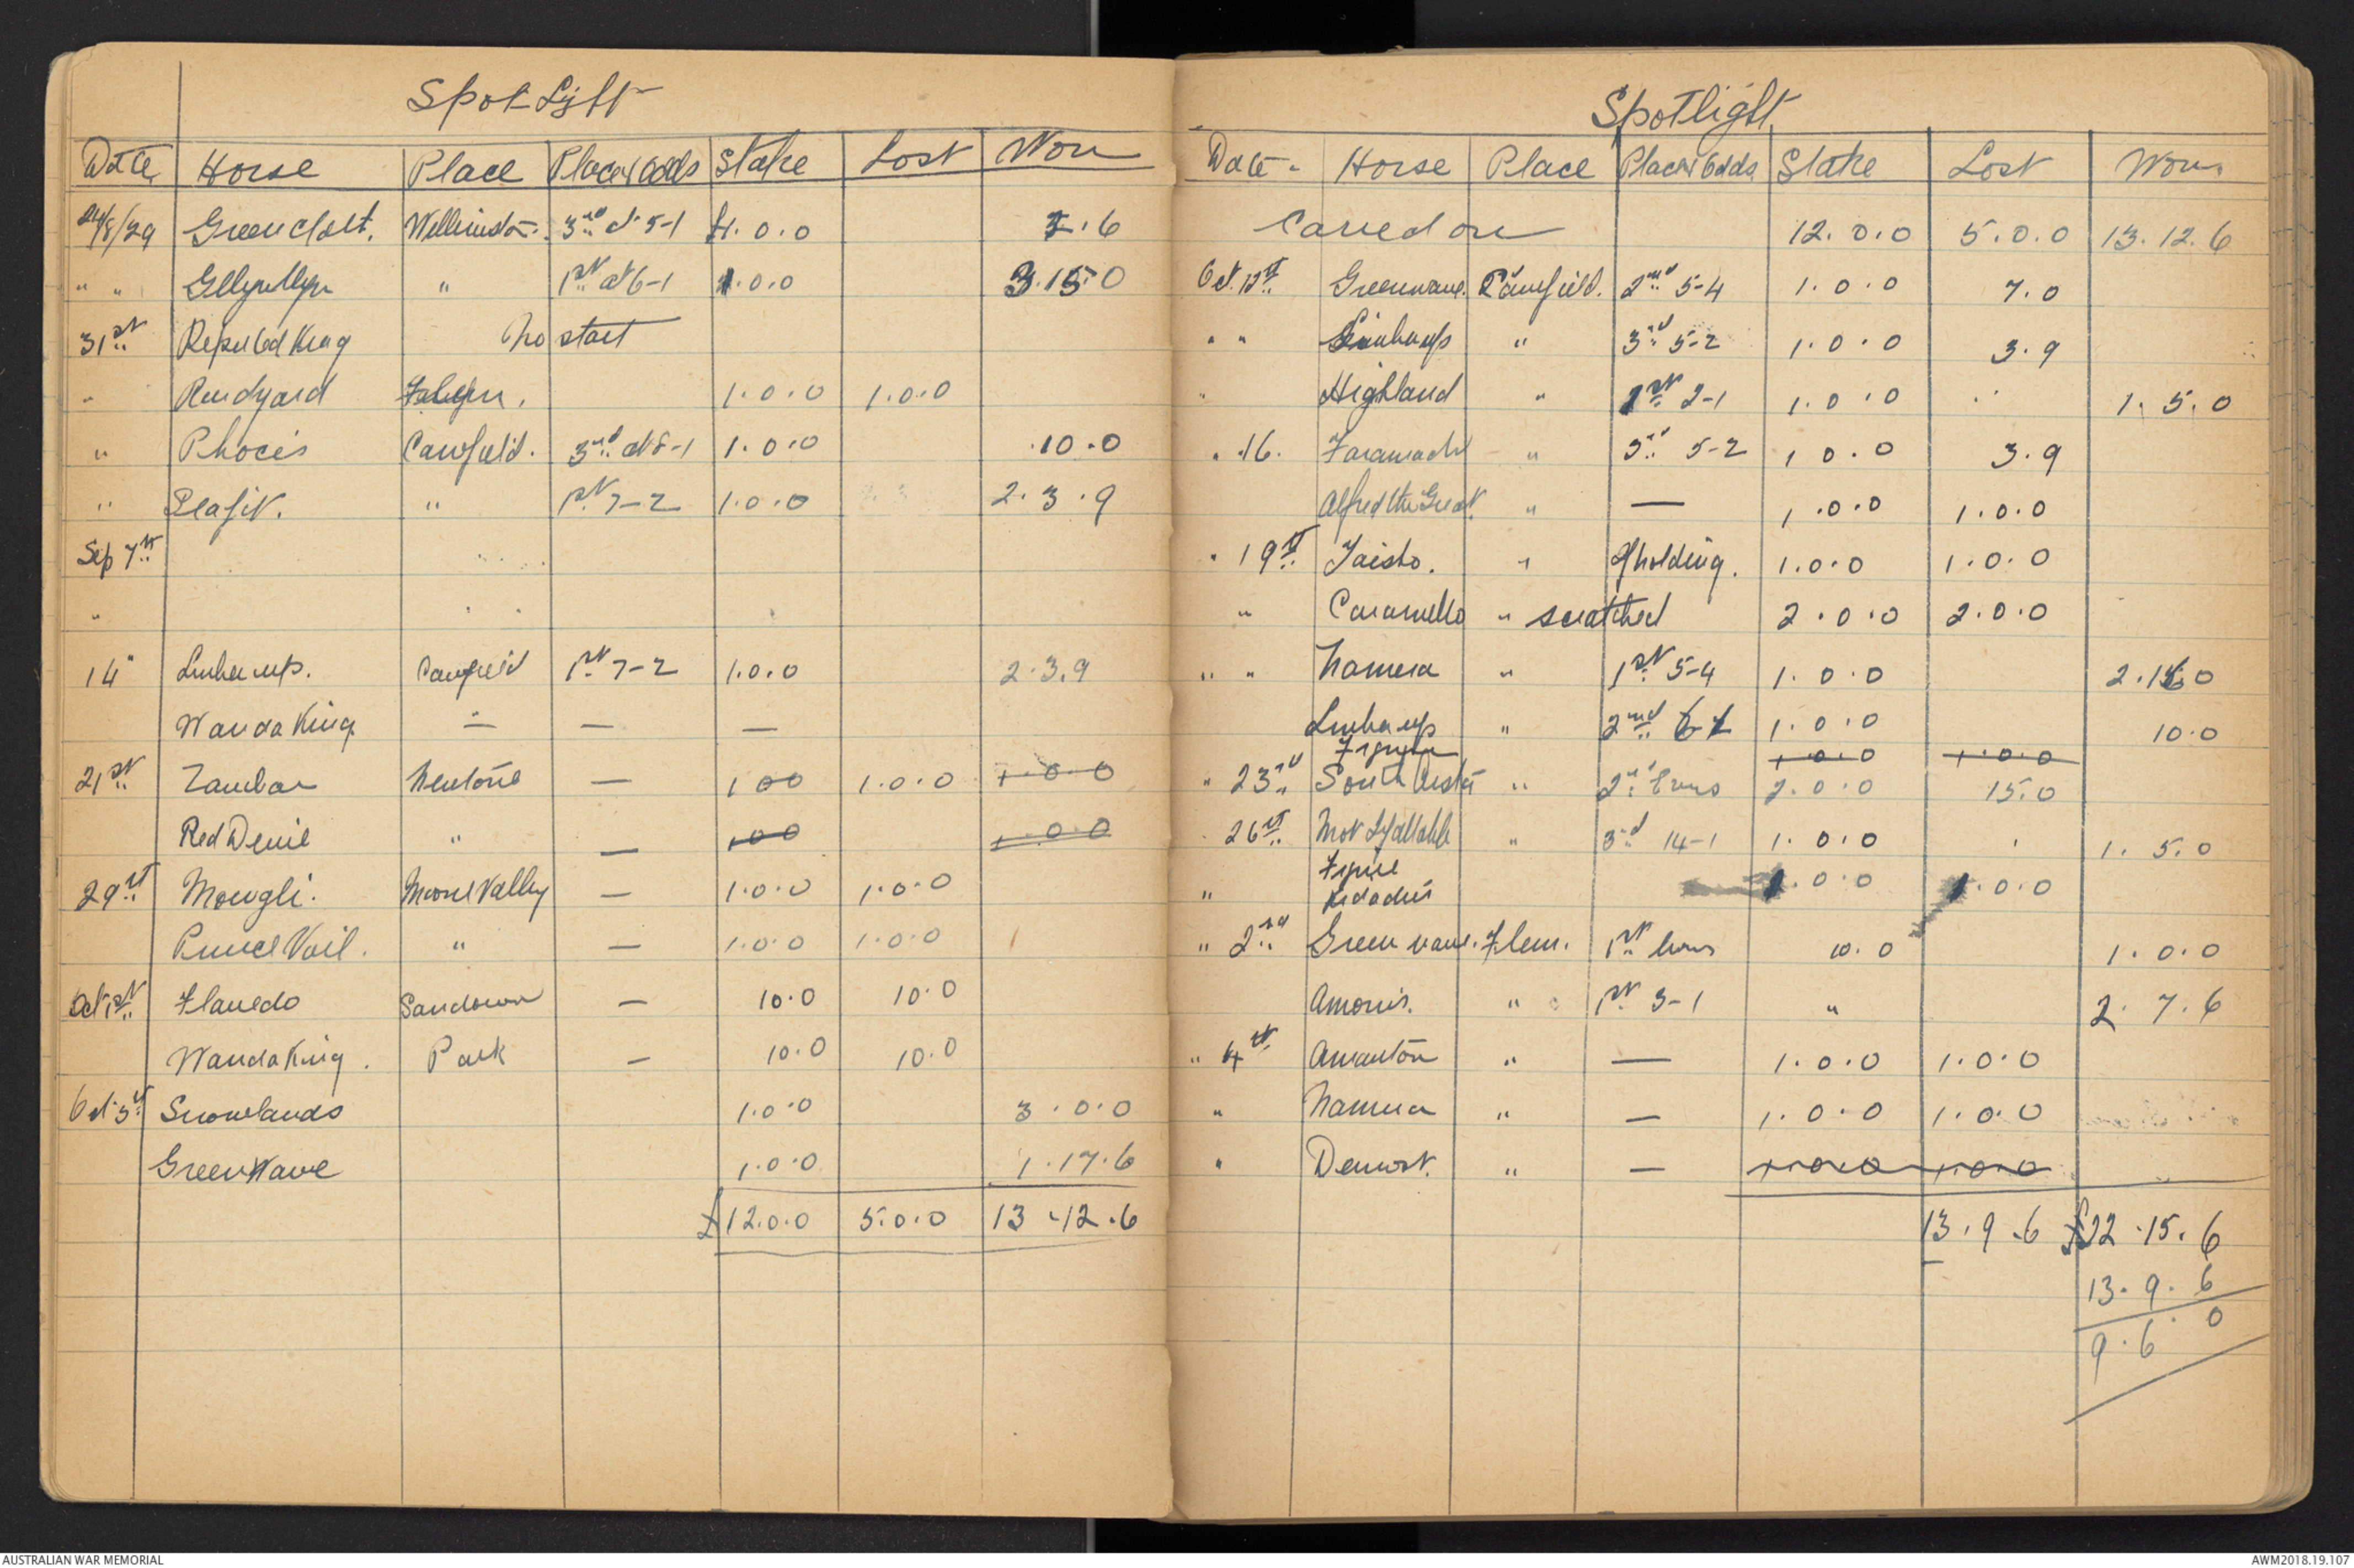 Spotlight
Date Horse Place Place & Odds Stake Lost Won
24/8/29 Greencloth. 3rd at 5-1 £1.0.0 2.6
" " " 1st at 6-1 1.0.0 3.15.0
31st Reputed King No start
" Rudyard 1.0.0 1.0.0
" Phocis Caulfield. 3rd at 8-1 1.0.0 .10.0
" " 1st 7-2 1.0.0 2.3.9
Sep 7th
"
14" Linberup. Caulfield 1st 7-2 1.0.0 2.3.9
Wanda King — — —
21st Zambar Mentone — 1 0 0 1.0.0 1.0.0
Red Devil " — 1 0 0 1.0.0
29th Mowgli. Moonee Valley — 1.0.0 1.0.0
Prince Voil. " — 1.0.0 1.0.0
Oct 1st Flavedo Sandown — 10.0 10.0
Wanda King. Park — 10.0 10.0
Oct 5th Snowlands 1.0.0 3.0.0
Green Wave 1.0.0 1.17.6
£12.0.0 5.0.0 13.12.6
Spotlight
Date - Horse Place Place & Odds Stake Lost Won
Carried on 12.0.0 5.0.0 13.12.6
Oct. 12th Greenwave. Caulfield. 2nd 5-4 1.0.0 7.0
" " Linberup " 3rd 5-2 1.0.0 3.9
" Highland " 1st 2-1 1.0.0 1.5.0
" 16. " 3rd 5-2 1 0.0 3.9
Alfred the Great. " — 1.0.0 1.0.0
" 19th Taisho. " 1.0.0 1.0.0
" Caramello " scratched 2.0.0 2.0.0
" " Namera " 1st 5-4 1.0.0
Linberup " 2nd 1.0.0 10.0
1.0.0 1.0.0
" 23rd " 2nd Evens 2.0.0 15.0
" 26th " 3rd 14-1 1.0.0 1.5.0
" 1.0.0 1.0.0
" 2nd Green wave. Flem. 1st Evens 10.0 1.0.0
Amonis. " 1st 3-1 " 2.7.6
" 4th " — 1.0.0 1.0.0
" Namera " — 1.0.0 1.0.0
" " — 1.0.0 1.0.0
13.9.6 £22.15.6
13.9.6
9.6.0
AUSTRALIAN WAR MEMORIAL
AWM2018.19.107